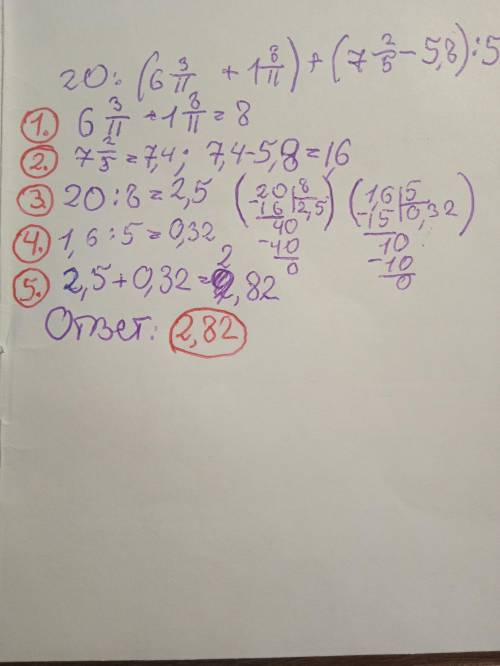 20:(6 3/11 + 1 8/11) + (7 2/5 - 5,8):5
1. 6 3/11 + 1 8/11 = 8
2. 7 2/5 = 7,4; 7,4 - 5,8 = 16
3. 20:8 = 2,5 (20|8 -16|2,5 40 -40 0) (1,6|5 -15|0,32 10 -10 0)
4. 1,6:5 = 0,32
5. 2,5 + 0,32 = 2,82
Ответ: 2,82